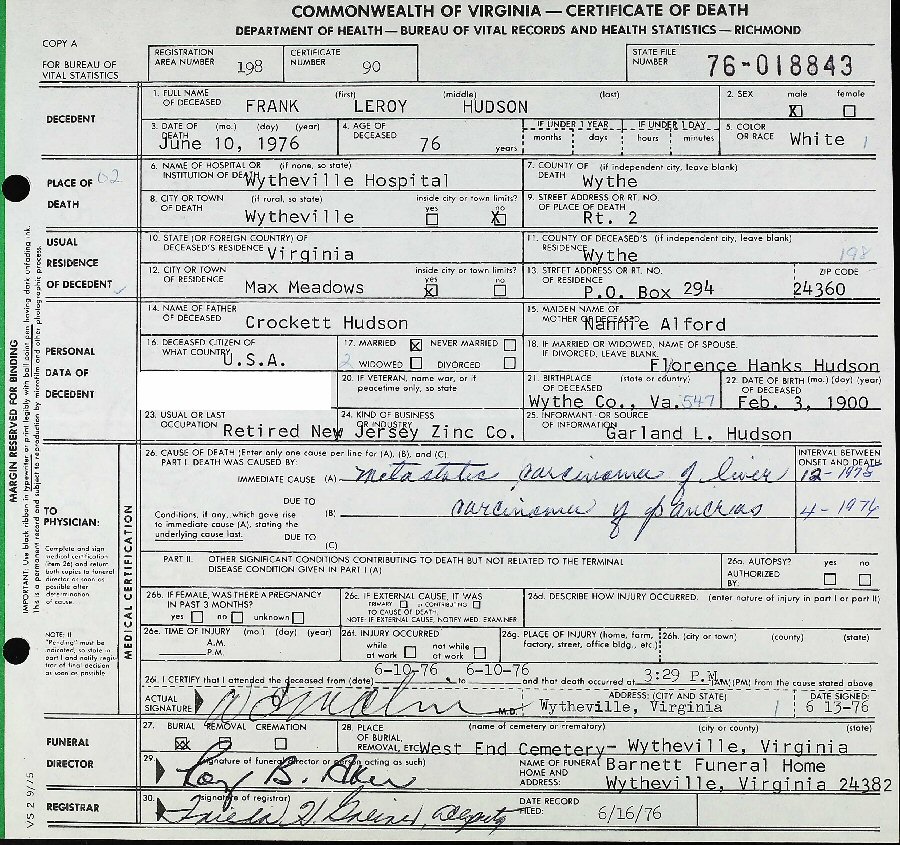 COMMONWEALTH OF VIRGINIA — CERTIFICATE OF DEATH
DEPARTMENT OF HEALTH — BUREAU OF VITAL RECORDS AND HEALTH STATISTICS — RICHMOND
COPY A
FOR BUREAU OF VITAL STATISTICS
REGISTRATION AREA NUMBER 198
CERTIFICATE NUMBER 90
STATE FILE NUMBER 76-018843
DECEDENT
1. FULL NAME OF DECEASED (first) (middle) (last)
FRANK LEROY HUDSON
2. SEX male female
X
3. DATE OF DEATH (mo.) (day) (year)
June 10, 1976
4. AGE OF DECEASED 76 years
IF UNDER 1 YEAR months days
IF UNDER 1 DAY hours minutes
5. COLOR OR RACE White 1
PLACE OF DEATH 02
6. NAME OF HOSPITAL OR INSTITUTION OF DEATH (if none, so state)
Wytheville Hospital
7. COUNTY OF DEATH (if independent city, leave blank)
Wythe
8. CITY OR TOWN OF DEATH (if rural, so state)
Wytheville
inside city or town limits? yes no
X
9. STREET ADDRESS OR RT. NO. OF PLACE OF DEATH
Rt. 2
USUAL RESIDENCE OF DECEDENT
10. STATE (OR FOREIGN COUNTRY) OF DECEASED'S RESIDENCE
Virginia
11. COUNTY OF DECEASED'S RESIDENCE (if independent city, leave blank)
Wythe 198
12. CITY OR TOWN OF RESIDENCE
Max Meadows
inside city or town limits? yes no
X
13. STREET ADDRESS OR RT. NO. OF RESIDENCE
P.O. Box 294
ZIP CODE
24360
PERSONAL DATA OF DECEDENT
14. NAME OF FATHER OF DECEASED
Crockett Hudson
15. MAIDEN NAME OF MOTHER OF DECEASED
Nannie Alford
16. DECEASED CITIZEN OF WHAT COUNTRY
U.S.A.
17. MARRIED X NEVER MARRIED
2 WIDOWED DIVORCED
18. IF MARRIED OR WIDOWED, NAME OF SPOUSE. IF DIVORCED, LEAVE BLANK.
Florence Hanks Hudson
20. IF VETERAN, name war, or if peacetime only, so state
21. BIRTHPLACE OF DECEASED (state or country)
Wythe Co., Va. 547
22. DATE OF BIRTH (mo.) (day) (year) OF DECEASED
Feb. 3, 1900
23. USUAL OR LAST OCCUPATION Retired
24. KIND OF BUSINESS OR INDUSTRY
New Jersey Zinc Co.
25. INFORMANT OR SOURCE OF INFORMATION
Garland L. Hudson
MEDICAL CERTIFICATION
TO PHYSICIAN:
Complete and sign medical certification (item 26) and return both copies to funeral director as soon as possible after determination of cause.
NOTE: If "Pending" must be indicated, so state in part I and notify registrar of final decision as soon as possible
26. CAUSE OF DEATH (Enter only one cause per line for (A), (B), and (C)
PART I. DEATH WAS CAUSED BY:
INTERVAL BETWEEN ONSET AND DEATH
IMMEDIATE CAUSE (A) metastatic carcinoma of liver 12-1975
DUE TO
Conditions, if any, which gave rise to immediate cause (A), stating the underlying cause last.
(B) carcinoma of pancreas 4-1976
DUE TO
(C)
PART II. OTHER SIGNIFICANT CONDITIONS CONTRIBUTING TO DEATH BUT NOT RELATED TO THE TERMINAL DISEASE CONDITION GIVEN IN PART I (A)
26a. AUTOPSY? yes no
AUTHORIZED BY:
26b. IF FEMALE, WAS THERE A PREGNANCY IN PAST 3 MONTHS?
yes no unknown
26c. IF EXTERNAL CAUSE, IT WAS
PRIMARY or CONTRIBUTING
TO CAUSE OF DEATH.
NOTE: IF EXTERNAL CAUSE, NOTIFY MED. EXAMINER
26d. DESCRIBE HOW INJURY OCCURRED. (enter nature of injury in part I or part II)
26e. TIME OF INJURY (mo.) (day) (year)
A.M.
P.M.
26f. INJURY OCCURRED
while at work not while at work
26g. PLACE OF INJURY (home, farm, factory, street, office bldg., etc.)
26h. (city or town) (county) (state)
26i. I CERTIFY that I attended the deceased from (date) 6-10-76 to 6-10-76 and that death occurred at 3:29 P.M. (AM)(PM) from the cause stated above
ACTUAL SIGNATURE M.D.
ADDRESS: (CITY AND STATE)
Wytheville, Virginia 1
DATE SIGNED:
6 13-76
FUNERAL DIRECTOR
27. BURIAL REMOVAL CREMATION
28. PLACE OF BURIAL, REMOVAL, ETC. (name of cemetery or crematory) (city or county) (state)
West End Cemetery- Wytheville, Virginia
29. (signature of funeral director or person acting as such)
NAME OF FUNERAL HOME AND ADDRESS:
Barnett Funeral Home
Wytheville, Virginia 24382
REGISTRAR
30. (signature of registrar)
Deputy
DATE RECORD FILED: 6/16/76
MARGIN RESERVED FOR BINDING
IMPORTANT: Use black ribbon in typewriter or print legibly with ball point pen having dark unfading ink.
This is a permanent record and subject to reproduction by microfilm and other photographic process.
VS 2 9/75